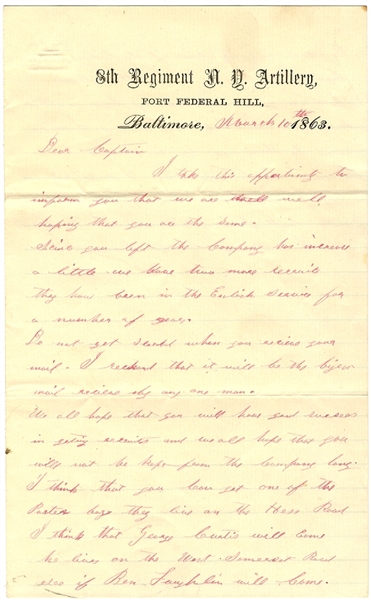 8th Regiment N. Y. Artillery,
FORT FEDERAL HILL,
Baltimore, March 10th 1863.
Dear Captain
I take this opportunity to
inform you that we are well
hoping that you are the same.
Since you left the Company has increase
a little we have two more recruits
they have been in the English Service for
a number of years.
Do not get when you recieve your
mail. I that it will be the
mail recieve by any one man.
We all hope that you will have good success
in geting recruits and we all hope that you
will not be kept from the Company long.
I think that you can get one of the
boys they live on the Road
I think that George Curtis will Come
he lives on the West Somerset Road
also if Ben Laughlin will Come.